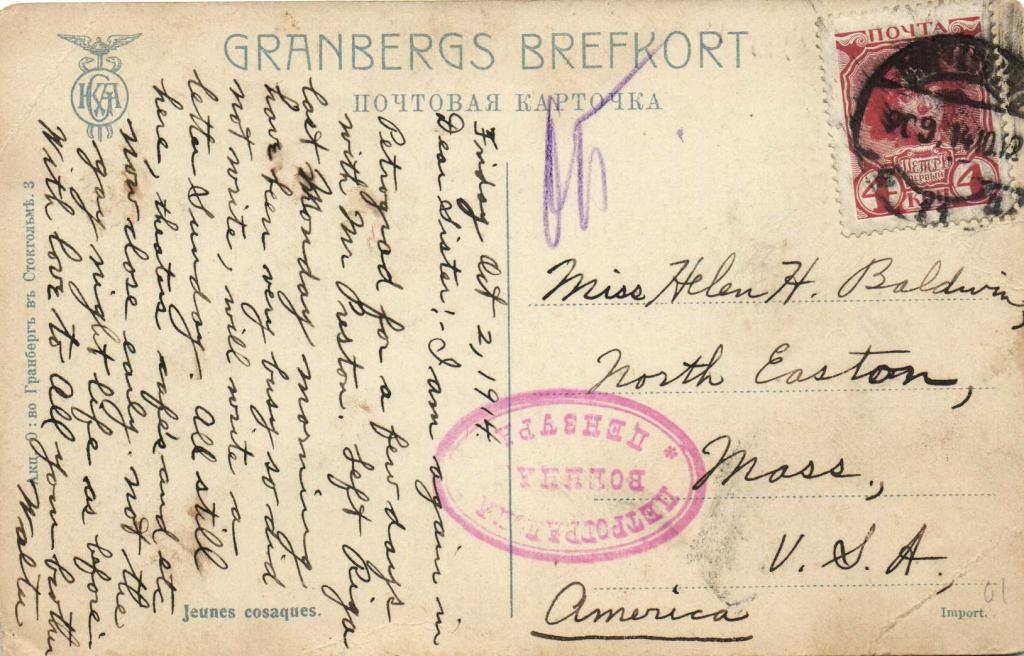 GRANBERGS BREFKORT
ПОЧТОВАЯ КАРТОЧКА
Friday Oct 2, 1914
Dear Sister: I am again in
Petrograd for a few days
with Mr Preston. Left Riga
last Monday morning
have been very busy so did
not write, will write a
letter Sunday. All still
here, theatres cafés and etc
now close early. not the
gay night life as before.
With love to all your brother
Walter
Miss Helen H. Baldwin,
North Easton,
Mass.,
U. S. A.
America
ПОЧТА
4 КОП 4
14.10.12
ПЕТРОГРАДСКАЯ
ВОЕННАЯ
ЦЕНЗУРА
Акц. О:во Гранбергъ въ Стокгольмѣ. 3
Jeunes cosaques.
Import.
01